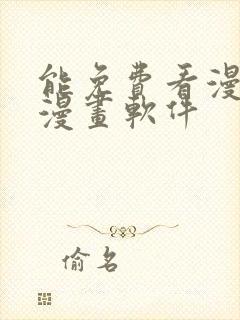 能免費看漫
漫畫軟件
偷名